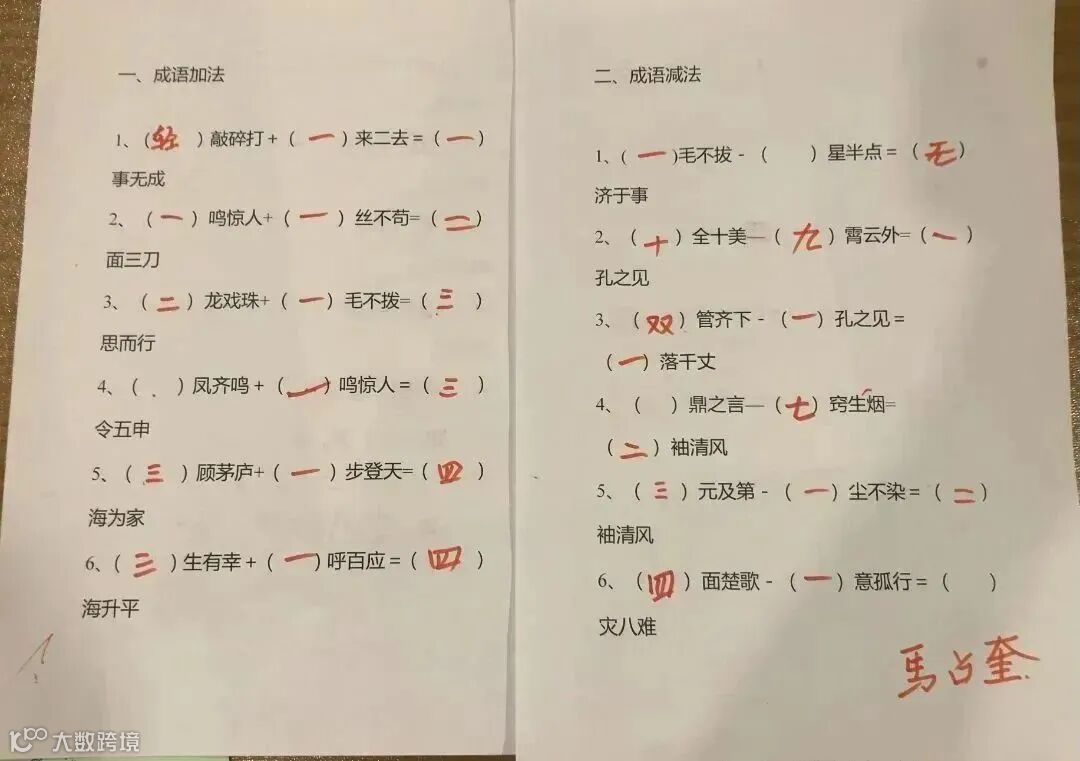 一、成语加法
1、(轻)敲碎打+(一)来二去=(一)
事无成
2、(一)鸣惊人+(一)丝不苟=(二)
面三刀
3、(二)龙戏珠+(一)毛不拨=(三)
思而行
4、( )凤齐鸣+(一)鸣惊人=(三)
令五申
5、(三)顾茅庐+(一)步登天=(四)
海为家
6、(三)生有幸+(一)呼百应=(四)
海升平
二、成语减法
1、(一)毛不拔-( )星半点=(无)
济于事
2、(十)全十美—(九)霄云外=(一)
孔之见
3、(双)管齐下-(一)孔之见=
(一)落千丈
4、( )鼎之言—(七)窍生烟=
(二)袖清风
5、(三)元及第-(一)尘不染=(二)
袖清风
6、(四)面楚歌-(一)意孤行=( )
灾八难
马占奎
大数跨境